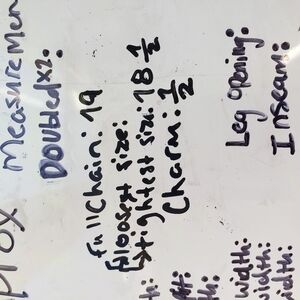 prox Measuremen
Doubledx2:
full Chain: 19
loosest size:
tightest size: 18 1/2
Charm: 1/2
Leg opening:
Inseam:
width:
width:
idth: